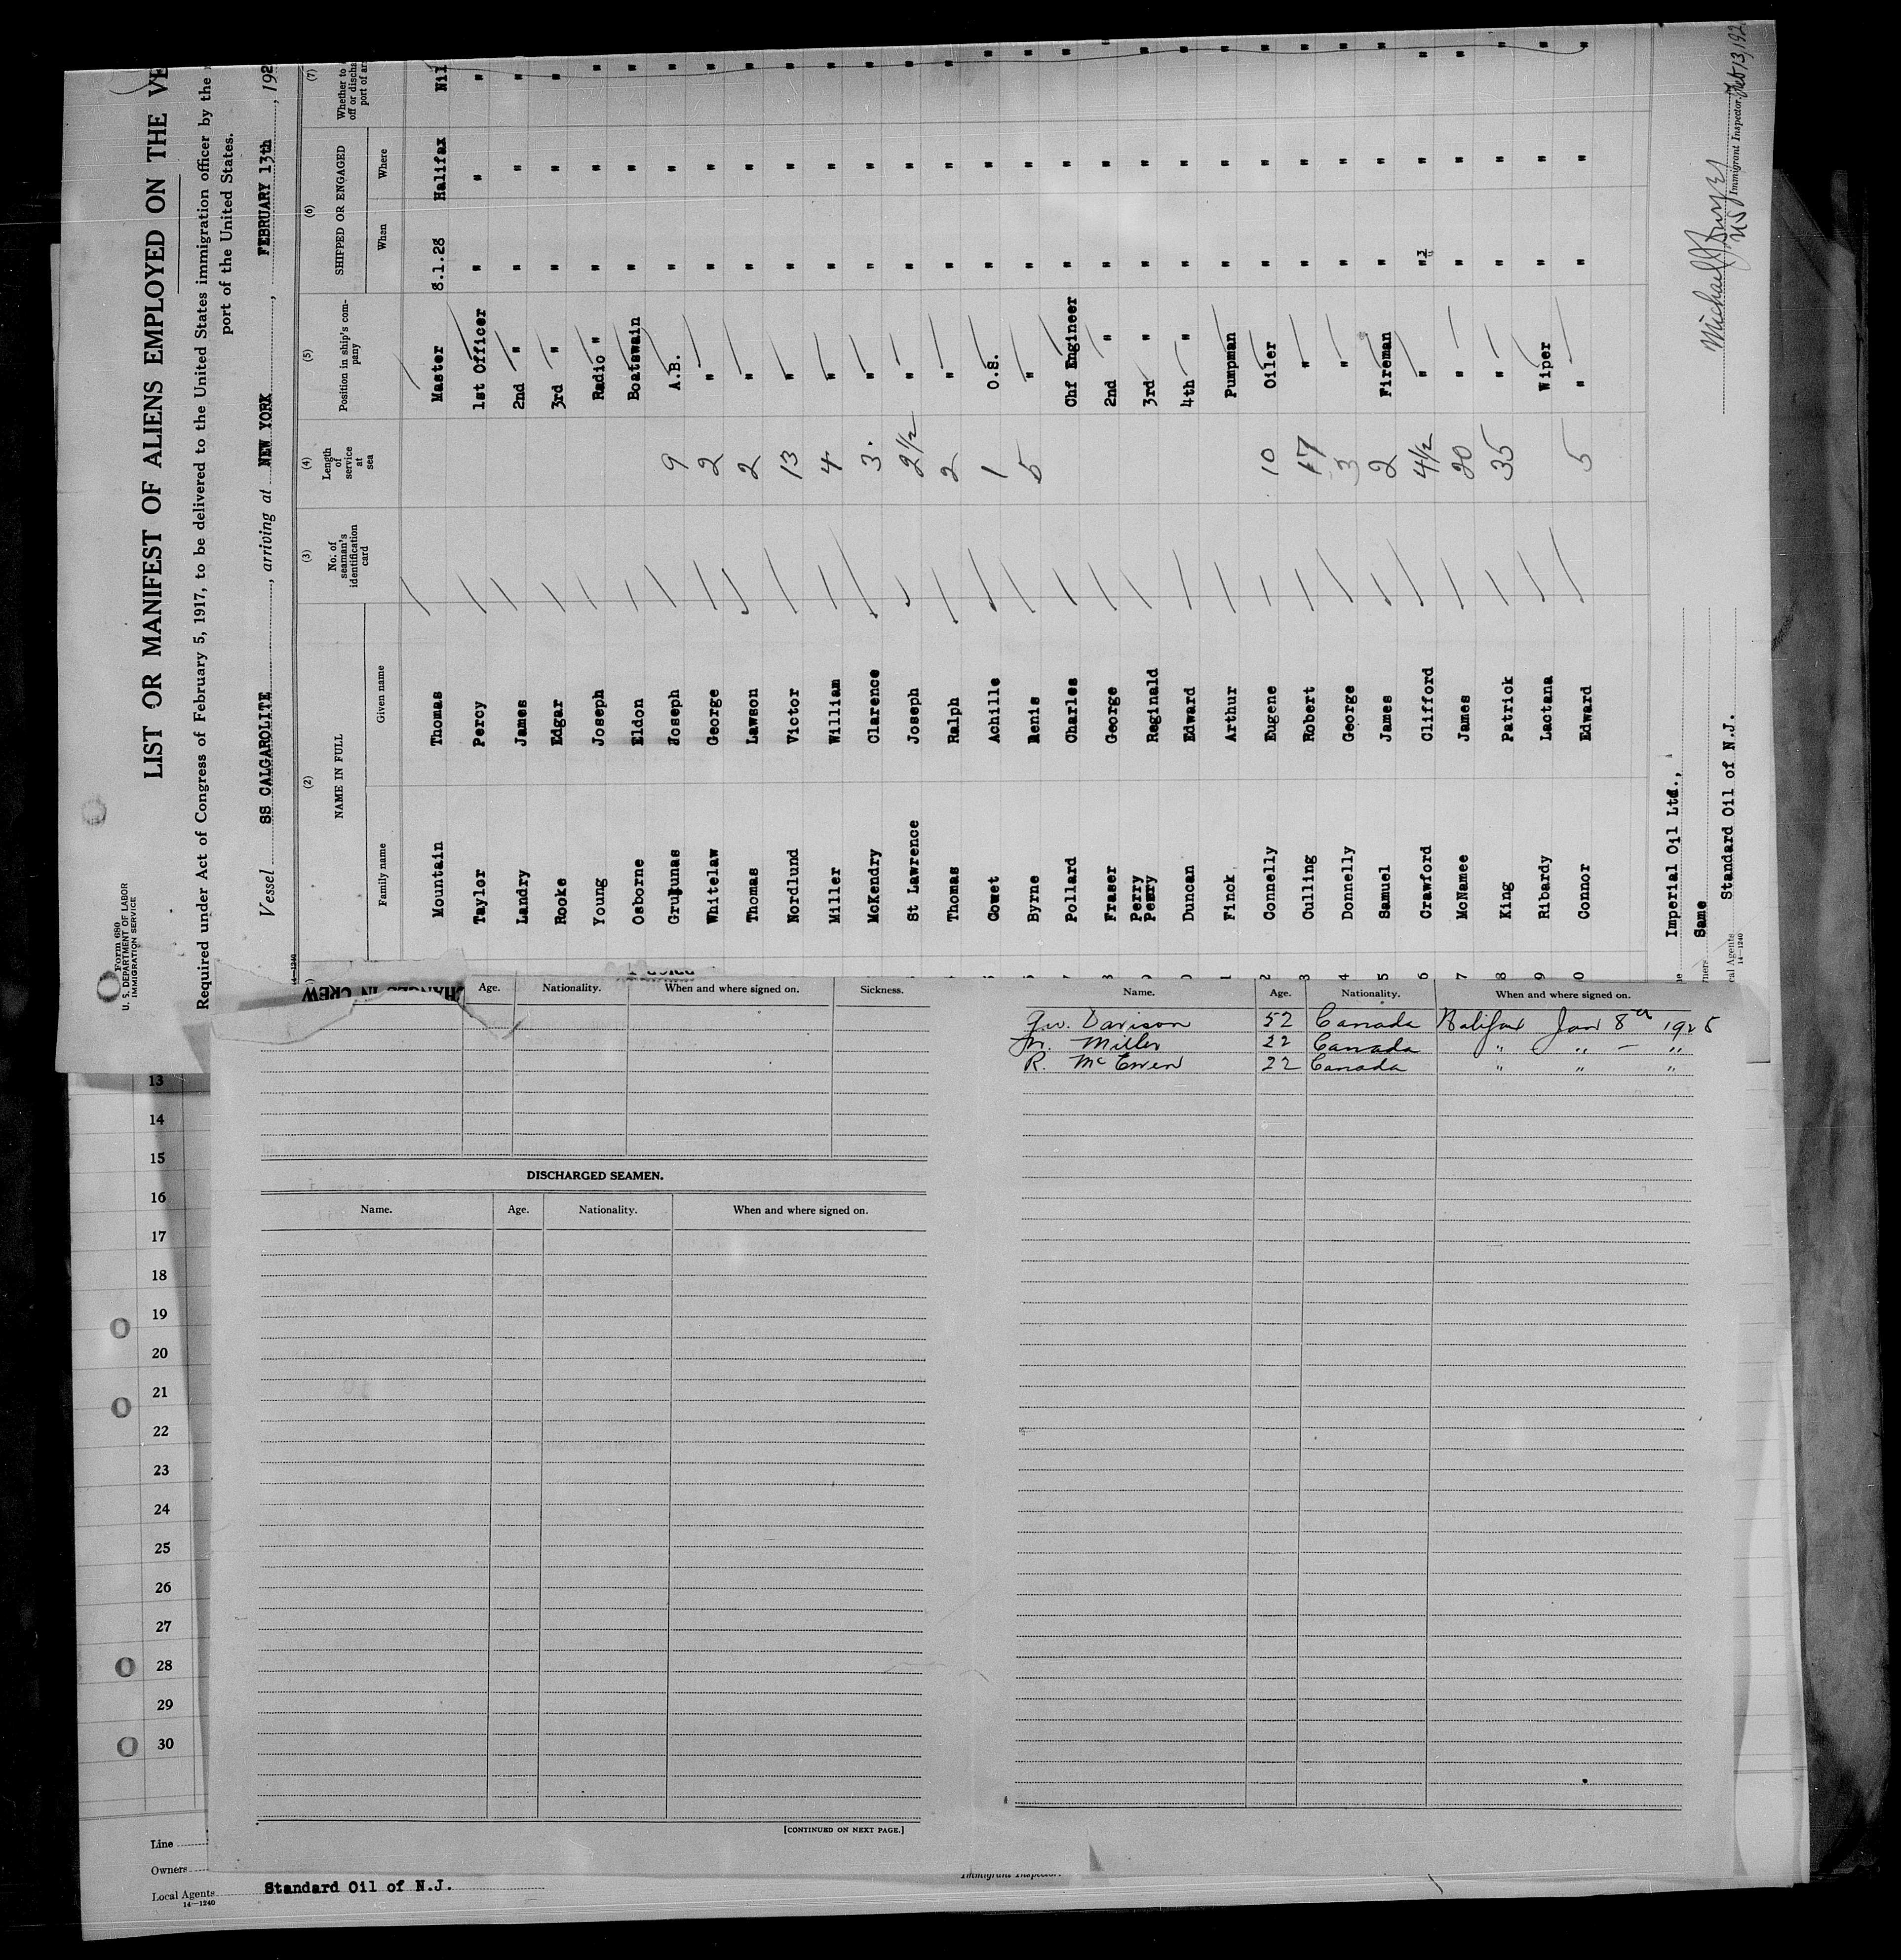 Form 680
U. S. DEPARTMENT OF LABOR
IMMIGRATION SERVICE
LIST OR MANIFEST OF ALIENS EMPLOYED ON THE VE
Required under Act of Congress of February 5, 1917, to be delivered to the United States immigration officer by the
port of the United States.
Vessel SS CALGAROLITE, arriving at NEW YORK, FEBRUARY 13th, 192
(2) (3) (4) (5) (6) (7)
NAME IN FULL No. of seaman's identification card Length of service at sea Position in ship's company SHIPPED OR ENGAGED Whether to
off or discha
port of ar
Family name Given name When Where
Mountain Thomas Master 8.1.28 Halifax Nil
Taylor Percy 1st Officer " " "
Landry James 2nd " " " "
Rooke Edgar 3rd " " " "
Young Joseph Radio " " " "
Osborne Eldon Boatswain " " "
Grukunas Joseph 9 A.B. " " "
Whitelaw George 2 " " " "
Thomas Lawson 2 " " " "
Nordlund Victor 13 " " " "
Miller William 4 " " " "
McKendry Clarence 3. " " " "
St Lawrence Joseph 2½ " " " "
Thomas Ralph 2 " " " "
Couet Achille 1 O.S. " " "
Byrne Renis 5 " " " "
Pollard Charles Chf Engineer " " "
Fraser George 2nd " " " "
Perry
Perry Reginald 3rd " " " "
Duncan Edward 4th " " " "
1 Finck Arthur Pumpman " " "
2 Connelly Eugene 10 Oiler " " "
3 Culling Robert 17 " " " "
4 Donnelly George 3 " " " "
5 Samuel James 2 Fireman " " "
6 Crawford Clifford 4½ " " " "
7 McNamee James 20 " " " "
8 King Patrick 35 " " " "
9 Ribardy Lactana Wiper " " "
0 Connor Edward 5 " " " "
Imperial Oil Ltd.,
ners Same
cal Agents Standard Oil of N.J.
14—1240
Immigrant Inspector. Feb 13, 192
HANGES IN CREW
Age. Nationality. When and where signed on. Sickness.
DISCHARGED SEAMEN.
Name. Age. Nationality. When and where signed on.
[CONTINUED ON NEXT PAGE.]
Name. Age. Nationality. When and where signed on.
Davison 52 Canada Halifax Jan 8th 1928
Miller 22 Canada " " — "
R. McEwen 22 Canada " " "
13
14
15
16
17
18
19
20
21
22
23
24
25
26
27
28
29
30
Line
Owners
Local Agents Standard Oil of N.J.
14—1240
Immigrant Inspector.